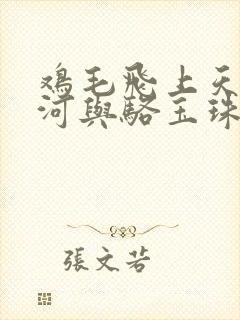 鸡毛飛上天
河與駱玉珠
張文若